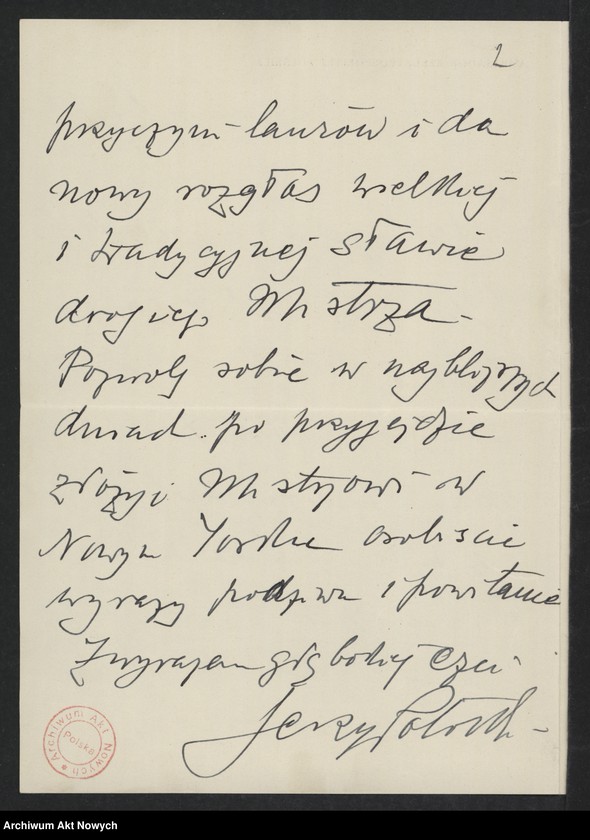 2
przyczyni laurów i da
nowy rozgłos wielkiej
i tradycyjnej sławie
drogiego Mistrza.
Pozwolę sobie w najbliższych
dniach po przyjeździe
złożyć Mistrzowi w
Nowym Yorku osobiście
wyrazy podziwu i powitanie
Z wyrazem głębokiej czci
Jerzy Potocki
Archiwum Akt Nowych
Polska
Archiwum Akt Nowych